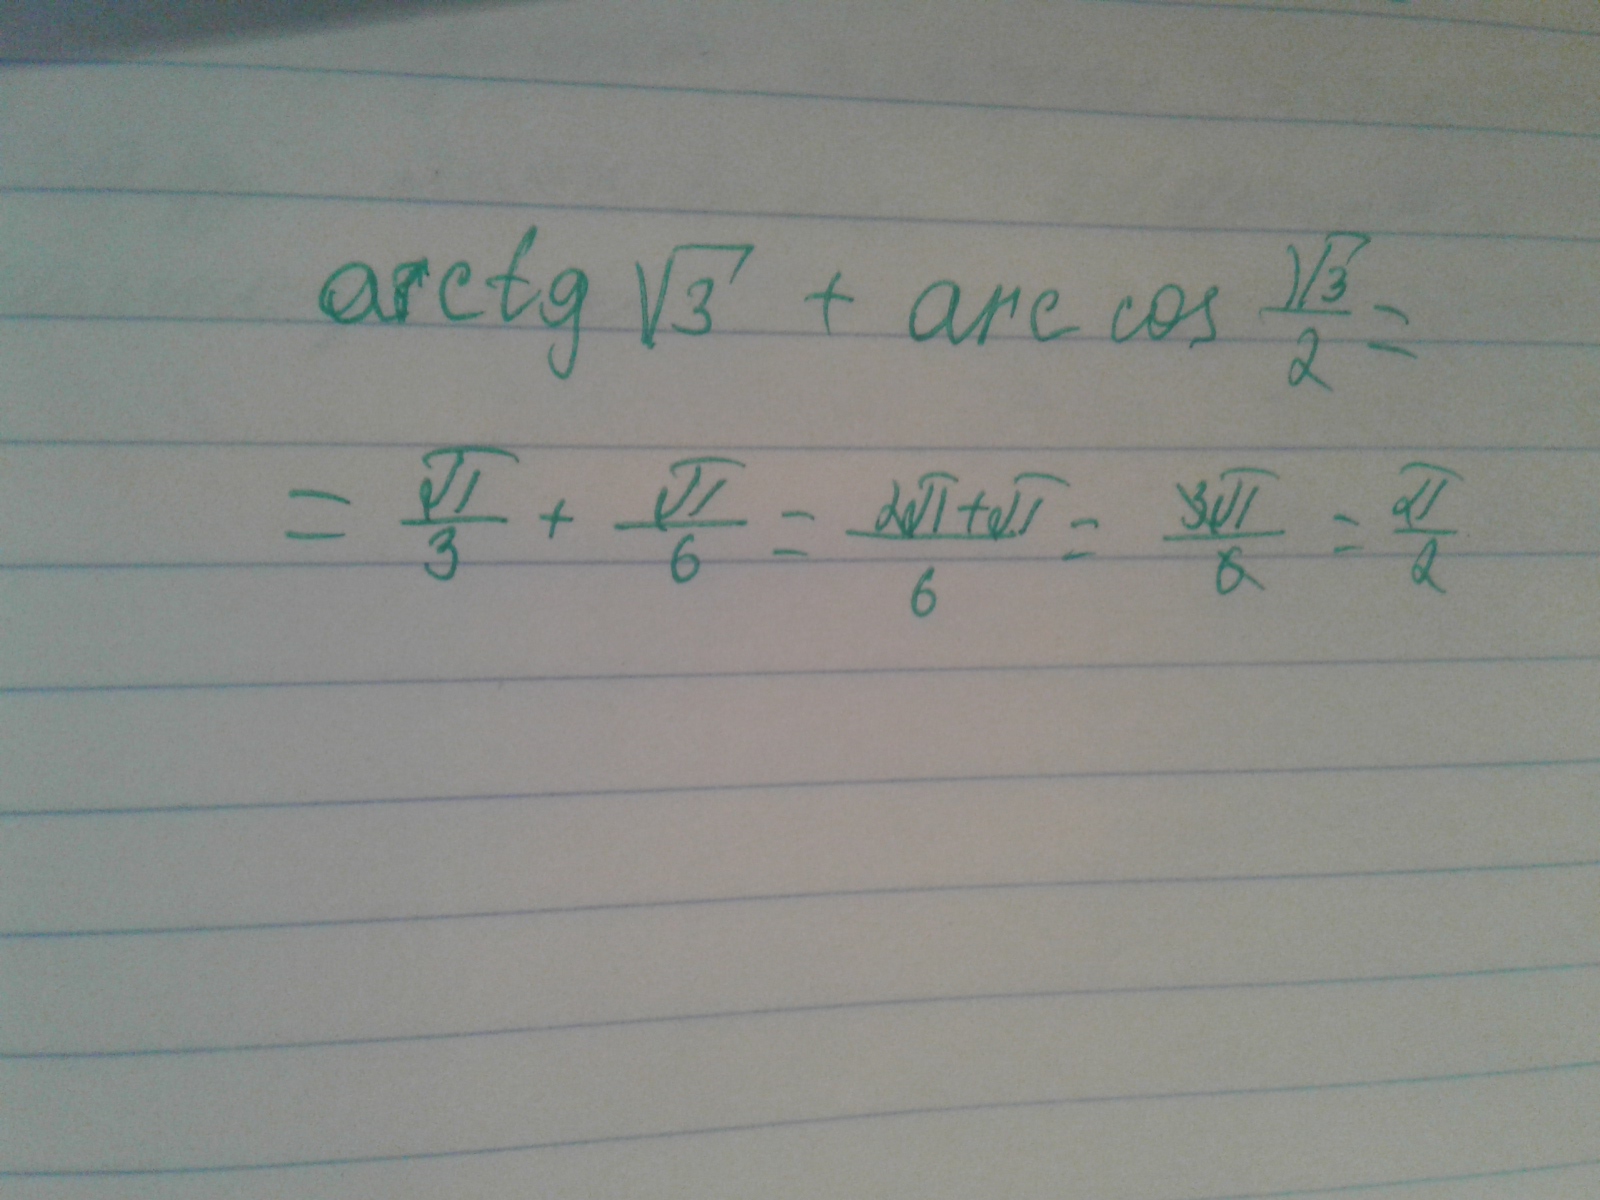 arctg √3 + arc cos √3/2 =
= π/3 + π/6 = 2π+π/6 = 3π/6 = π/2